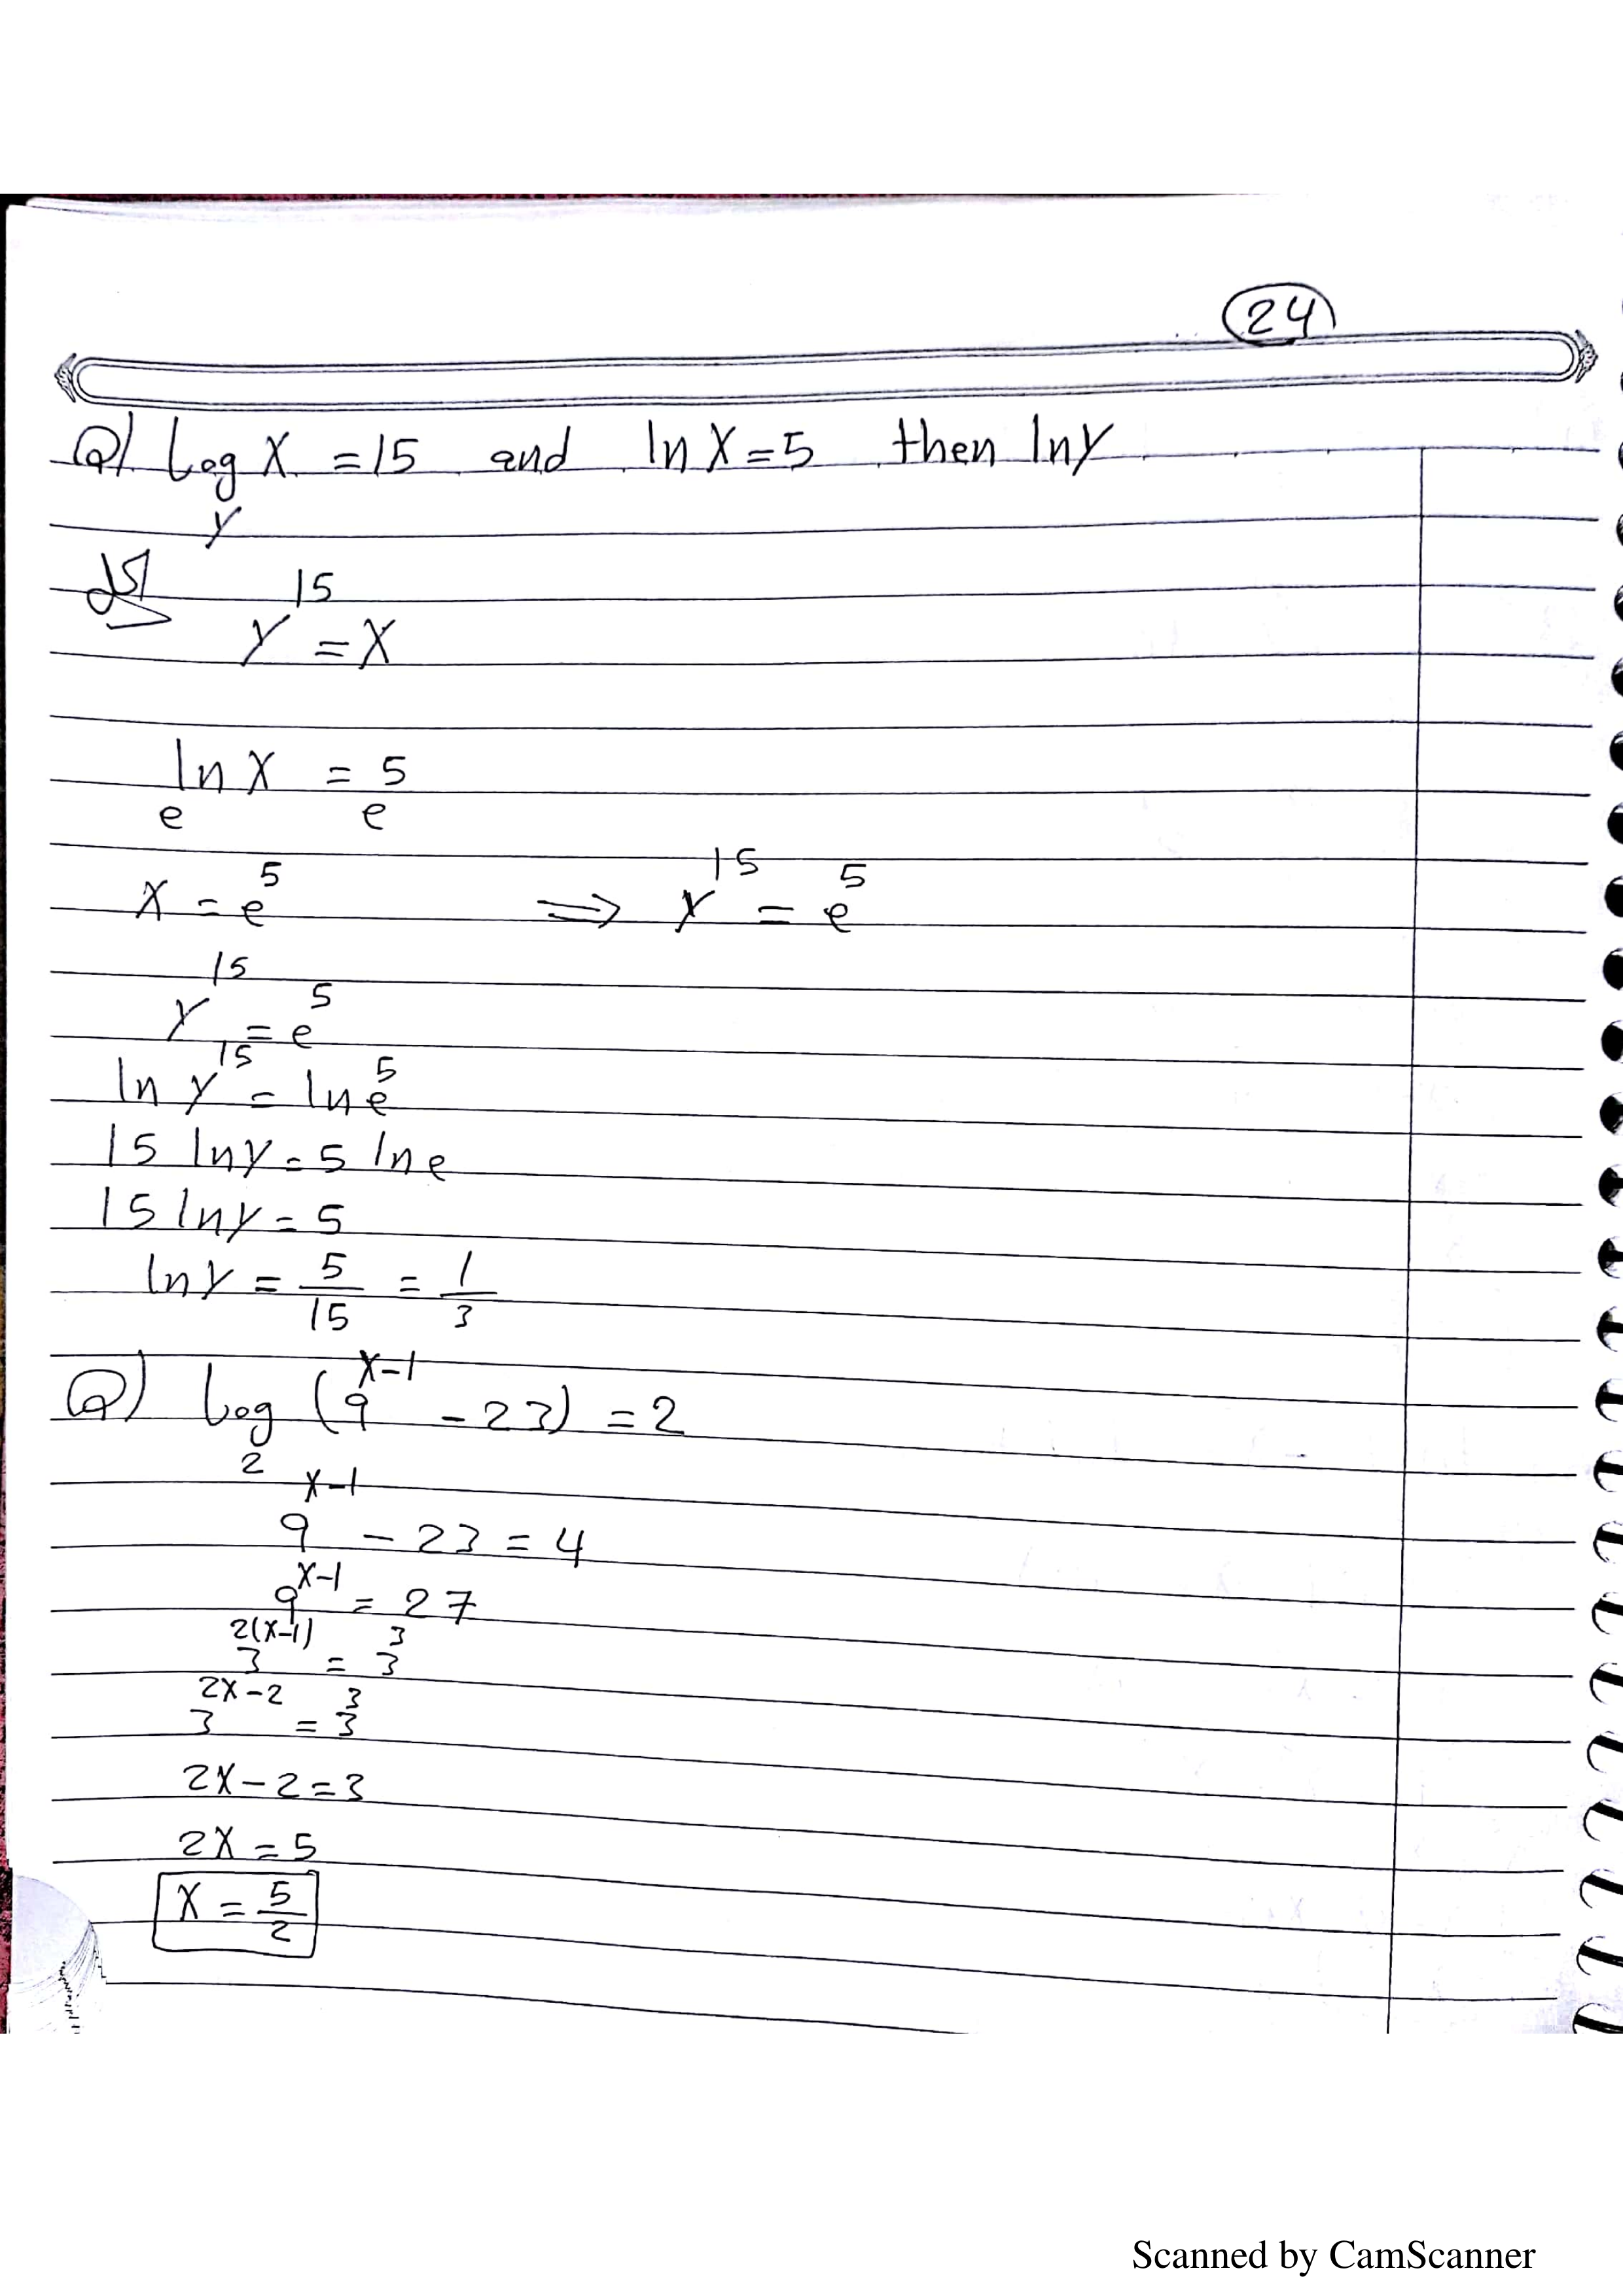 24
Q) log_y X = 15 and ln X = 5 then ln y
الحل
y^15 = X
e^ln X = e^5
X = e^5 ⇒ y^15 = e^5
y^15 = e^5
ln y^15 = ln e^5
15 ln y = 5 ln e
15 ln y = 5
ln y = 5/15 = 1/3
Q) log_2 (9^(x-1) - 23) = 2
9^(x-1) - 23 = 4
9^(x-1) = 27
3^(2(x-1)) = 3^3
3^(2x-2) = 3^3
2x - 2 = 3
2x = 5
x = 5/2
Scanned by CamScanner